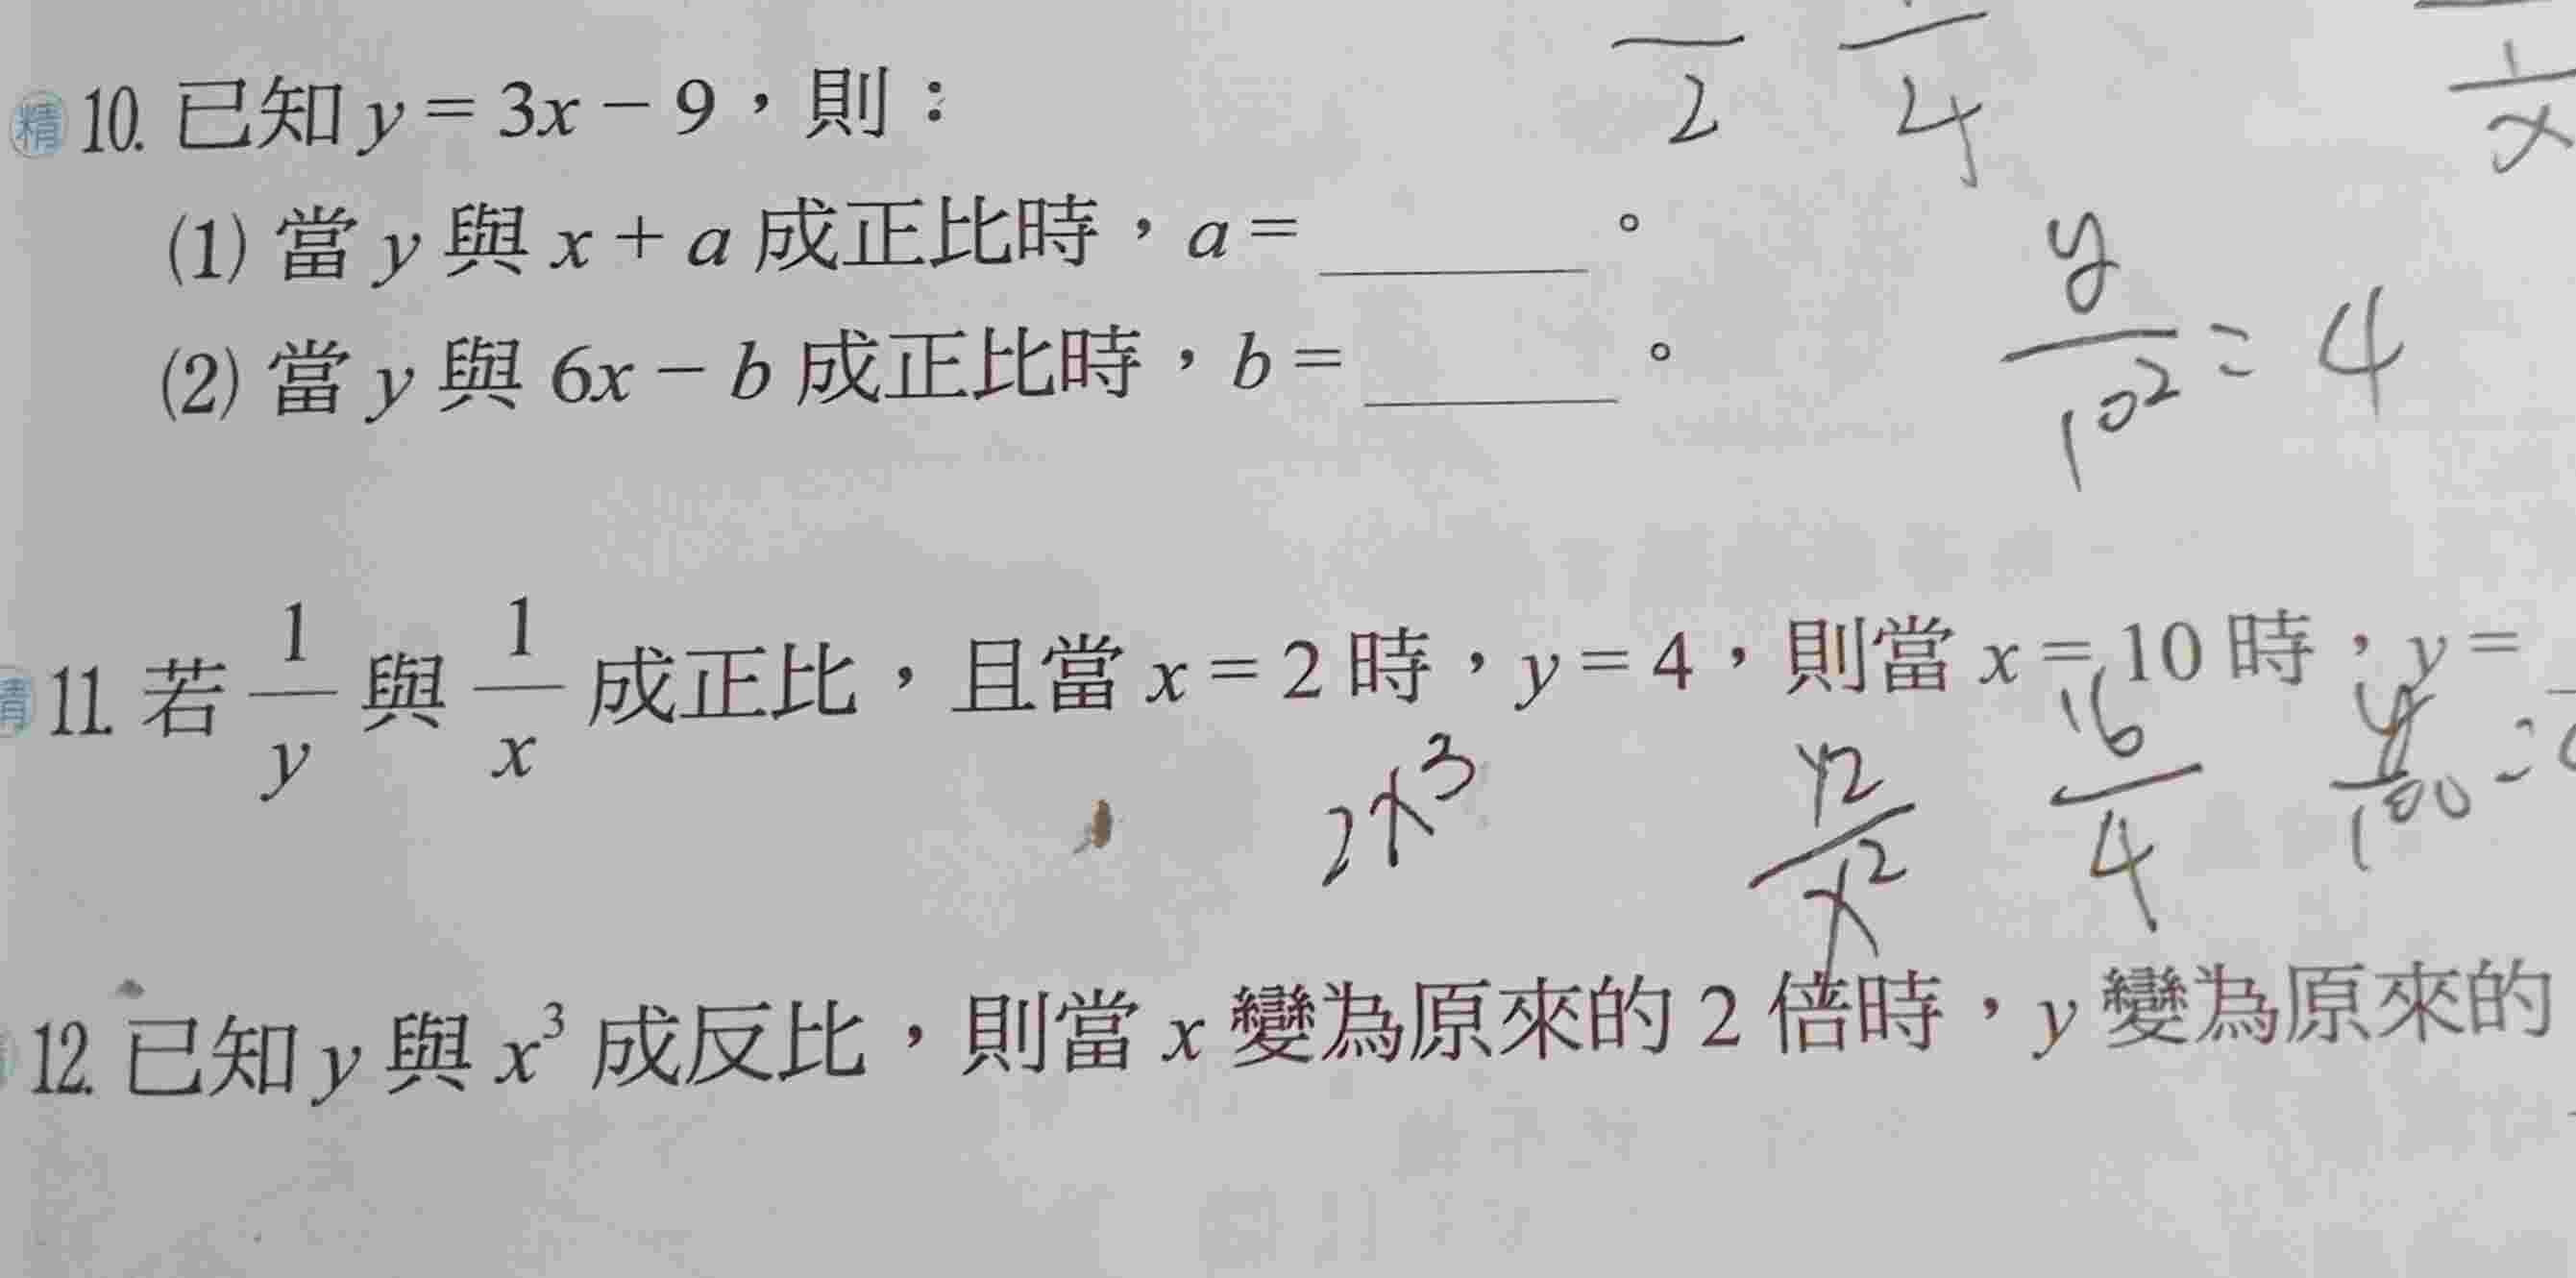 精 10. 已知 y = 3x − 9，則：
2 4
1/x
(1) 當 y 與 x + a 成正比時，a = ______。
(2) 當 y 與 6x − b 成正比時，b = ______。
y/10² = 4
精 11. 若 1/y 與 1/x 成正比，且當 x = 2 時，y = 4，則當 x = 10 時，y =
2x³ y2/x² 16/4 y/100 =
12. 已知 y 與 x³ 成反比，則當 x 變為原來的 2 倍時，y 變為原來的